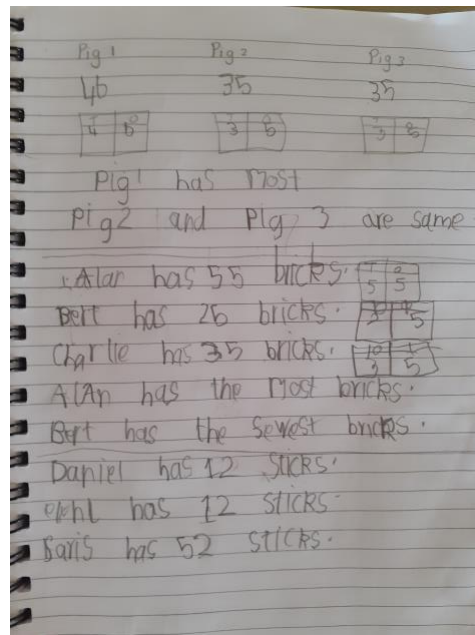 Pig 1 Pig 2 Pig 3
46 35 35
T O T O
4 6 3 5 3 5
Pig 1 has Most
Pig 2 and Pig 3 are same
Alan has 55 bricks. T O
5 5
Bert has 26 bricks.
Charlie has 35 bricks.
3 5
AlAn has the Most bricks.
Bert has the Sewest bricks.
Daniel has 12 Sticks.
has 12 Sticks
Faris has 52 Sticks.